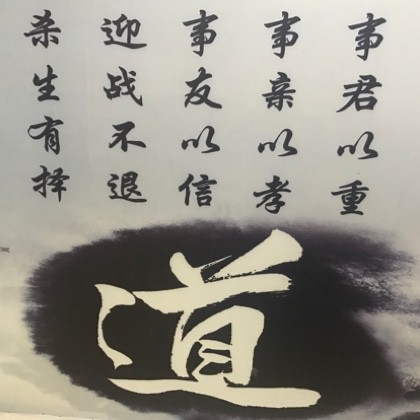 事君以重
事亲以孝
事友以信
迎战不退
杀生有择
道